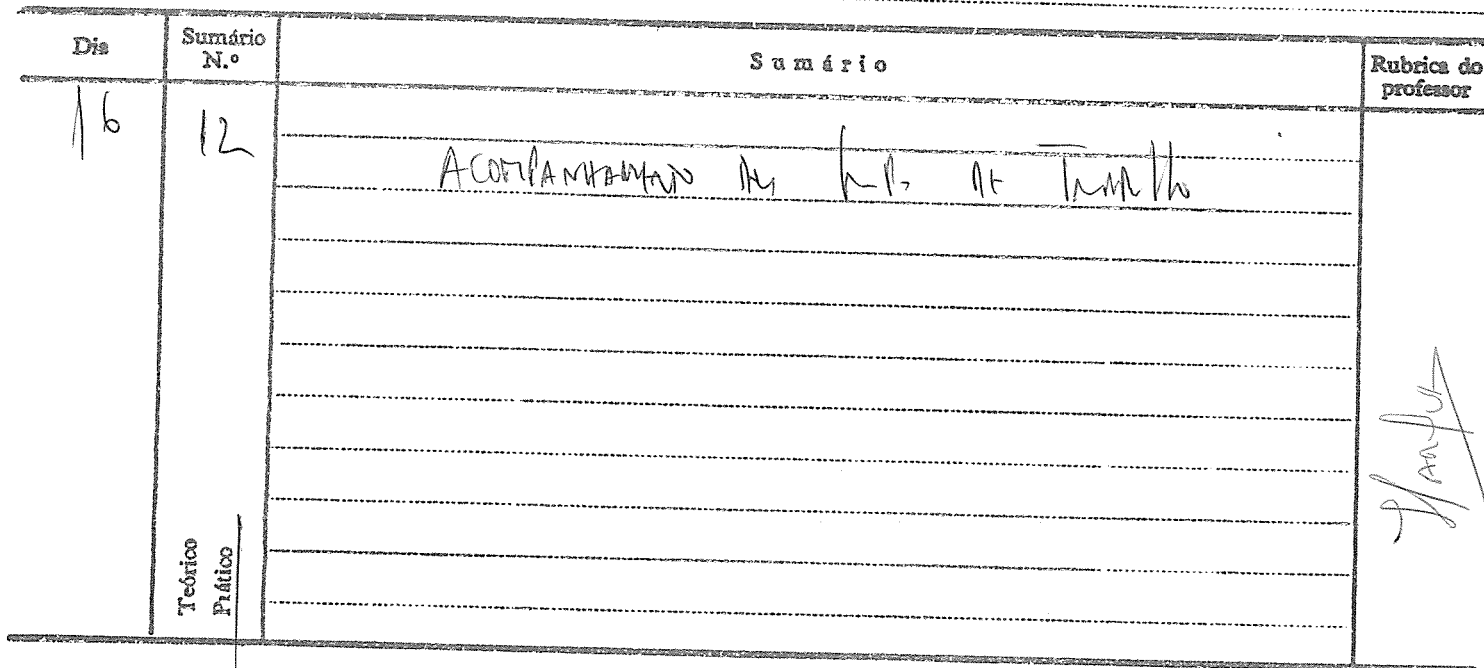 Dia
Sumário
N.º
Sumário
Rubrica do
professor
16
12
ACOMPANHAMENTO DE
Teórico
Prático